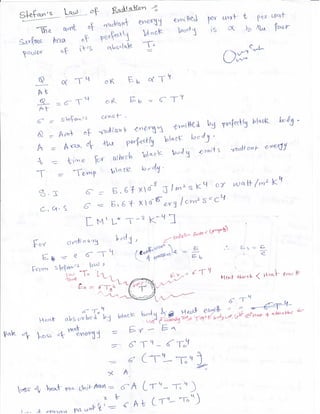 Stefan's Law of Radiation :
The amt of radiant energy emitted per unit t per unit
Surface Area of perfectly black body is α to the four
power of it's absolute T.
Q/At α T⁴ OR E_b α T⁴
Q/At = σ T⁴ OR E_b = σ T⁴
σ = stefan's const.
Q = Amt of radiant energy emitted by perfectly black body.
A = Area of the perfectly black body.
t = time for which black body emits radiant energy
T = Temp black body.
S.I σ = 5.67 x10⁻⁸ J/m²s K⁴ OR watt/m² K⁴
C.G.S σ = 5.67 x10⁻⁵ erg/cm² s°C⁴
[M¹ L⁰ T⁻³ K⁻⁴]
For ordinary body,
E_b = e σ T⁴ = E/E_b ∴ E_b = E/e
From stefan's law,
T₀ E_b = σT⁴
E_a = σT₀⁴ T
Heat absorbed by black body is
σT₀⁴ σT⁴
Rate of loss of heat energy = E_r - E_a
= σT⁴ - σT₀⁴
= σ (T⁴ - T₀⁴)
x A
Loss of heat per unit = σA (T⁴ - T₀⁴)
x t
= σAt (T⁴ - T₀⁴)